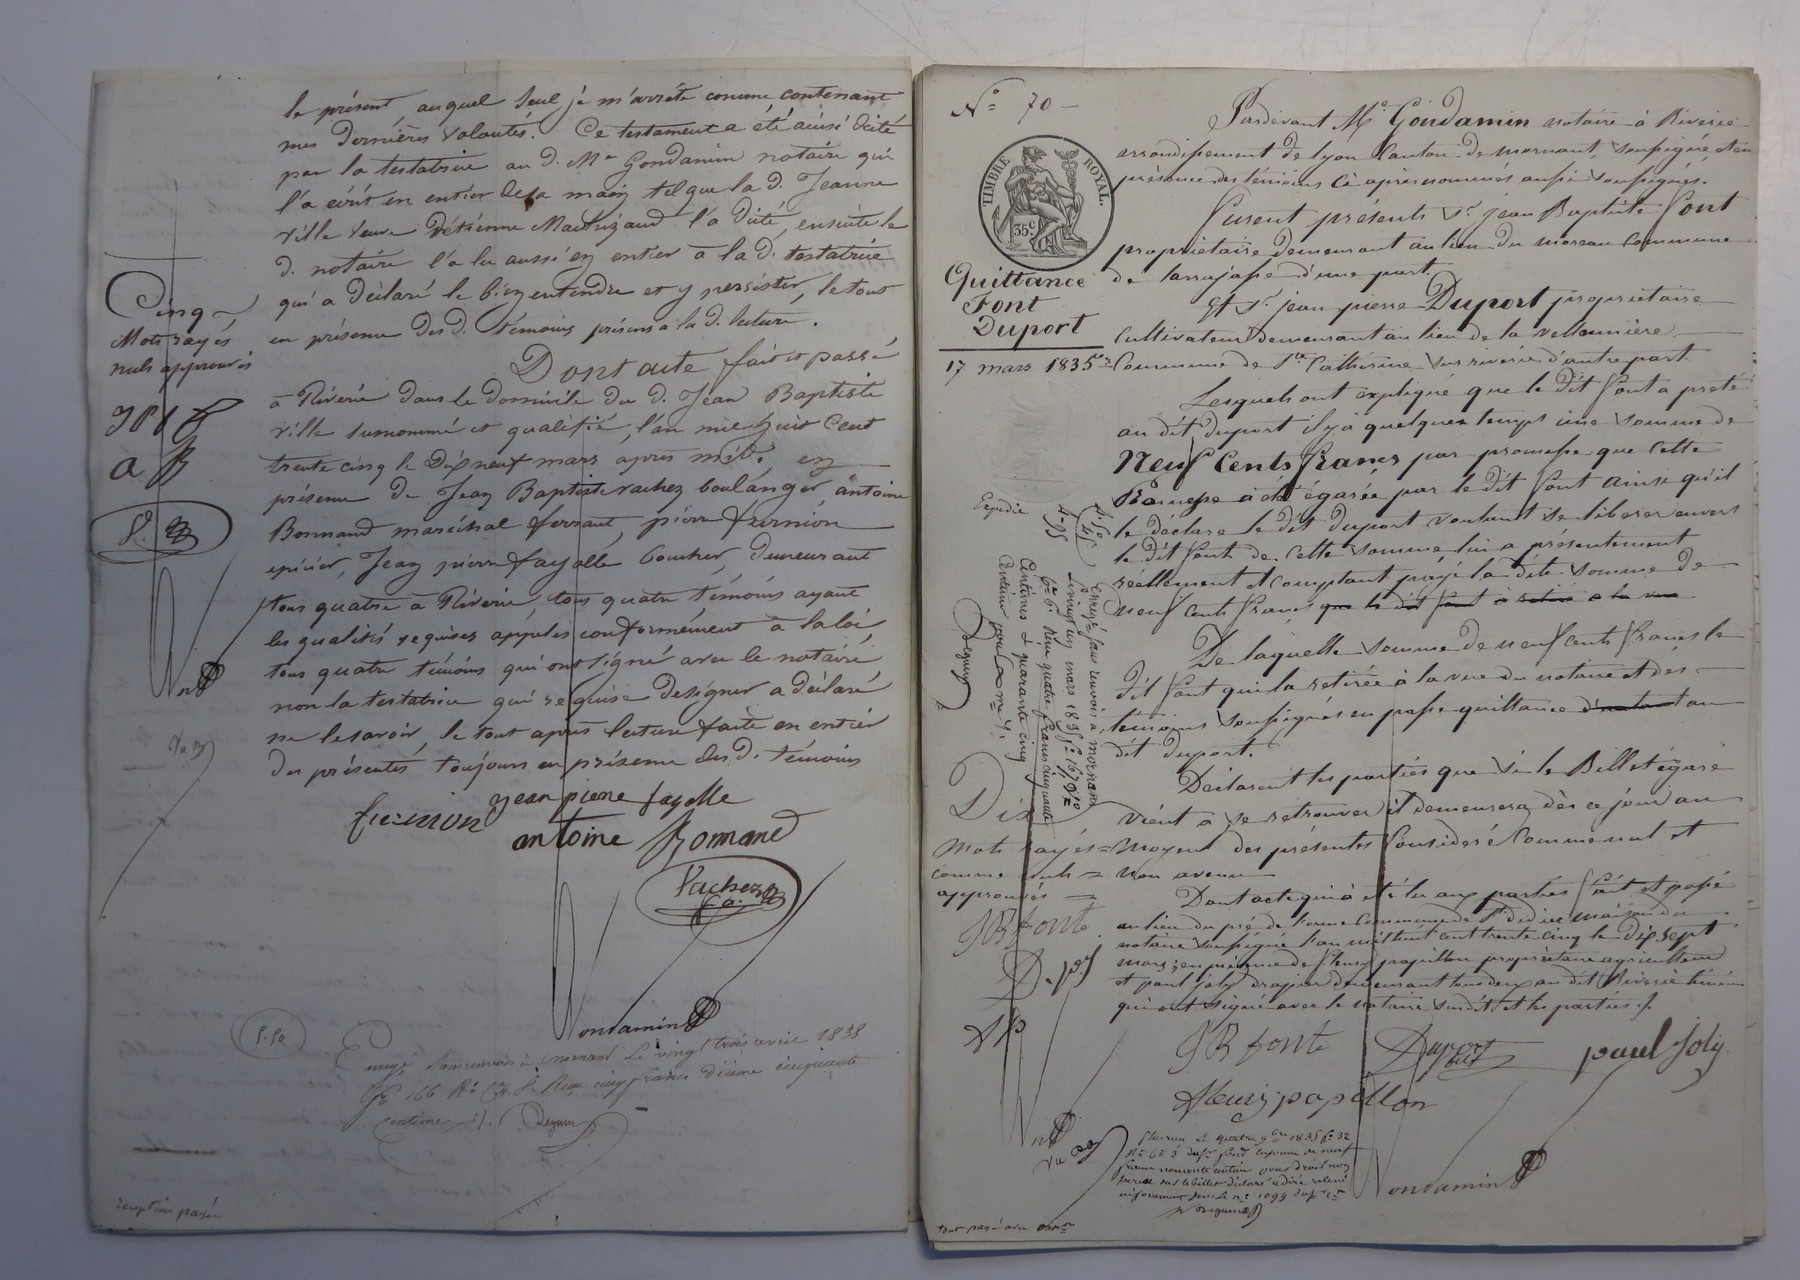 le présent auquel seul je m'arrête comme contenant
mes dernières volontés. Ce testament a été ainsi dicté
par la testatrice au d. Me Gondamin notaire qui
l'a écrit en entier de sa main tel que la d. Jeanne
ville veuve d'étienne l'a dicté, ensuite le
d. notaire l'a lu aussi en entier à la d. testatrice
qui a déclaré le bien entendre et y persister, le tout
en présence des d. témoins présens a la d. lecture.
Dont acte fait et passé
à Riverie dans le domicile du d. Jean Baptiste
ville surnommé et qualifié, l'an mil huit cent
trente cinq le dix neuf mars après midi en
présence de Jean Baptiste vachez boulanger, antoine
Bonnand maréchal ferrant, pierre furnion
epicier, Jean pierre fayolle boucher, demeurant
tous quatre à Riverie, tous quatre témoins ayant
les qualités requises appelés conformément à la loi,
tous quatre témoins qui ont signé avec le notaire
non la testatrice qui requise de signer a déclaré
ne le savoir, le tout après lecture faite en entier
des présentes toujours en présence des d. témoins
Cinq
Mots rayés
nuls approuvés
jp f
a B
V.
furnion jean pierre fayolle
antoine Bonnand
Vachez
Gondamin
5.50
Enregé sans renvois à mornant le vingt trois avril 1838
fo 166 Ro Cse 5 Reçu cinq francs dixième cinquante
centimes
Deguin
reception payée
No 70
TIMBRE ROYAL.
35c
Quittance
Font
Duport
17 mars 1835
Pardevant Me Gondamin notaire à Riverie
arrondissement de lyon canton de mornant, soussigné, et en
présence des témoins ci après nommés aussi soussignés.
Furent présents Sr jean Baptiste Font
propriétaire demeurant au lieu du moreau commune
de larajasse d'une part.
Et Sr jean pierre Duport propriétaire
cultivateur demeurant au lieu de la
Commune de Ste Catherine sur riverie d'autre part
Lesquels ont expliqué que le dit Font a preté
au dit Duport il y a quelques temps une somme de
Neuf Cents francs par promesse que cette
Promesse a été égarée par le dit font ainsi qu'il
le declare le dit Duport voulant se liberer envers
le dit font de cette somme lui a présentement
réellement et comptant payé la dite somme de
neuf cents francs que le dit font a retiré a la vue
De laquelle somme de neuf cents francs le
dit font qui la retirée à la vue du notaire et des
témoins soussignés en passe quittance au
dit Duport.
Déclarent les parties que si le Billet égaré
vient à se retrouver il demeurera dès ce jour au
Moyen des présentes Considéré Comme nul et
non avenu
Dont acte qui a été lu aux parties fait et passé
au lieu du pré de l'orme commune de St didier maison du
notaire soussigné l'an mil huit cent trente cinq le dix sept
mars; en présence de fleury papillon propriétaire agriculteur
et paul joly drapier demeurant tous deux au dit Riverie témoins
qui ont signé avec le notaire susdit et les parties
Expédié
4.50
45
4.95
Enregé sans renvois à mornant
le vingt un mars 1835 fo 167 Vo
Cse 6e Reçu quatre francs cinquante
centimes et quarante cinq
centimes pour
Deguin
Dix
Mots rayés
comme nuls
approuvés
JB font
JB font Duport paul Joly
fleury papillon
Gondamin